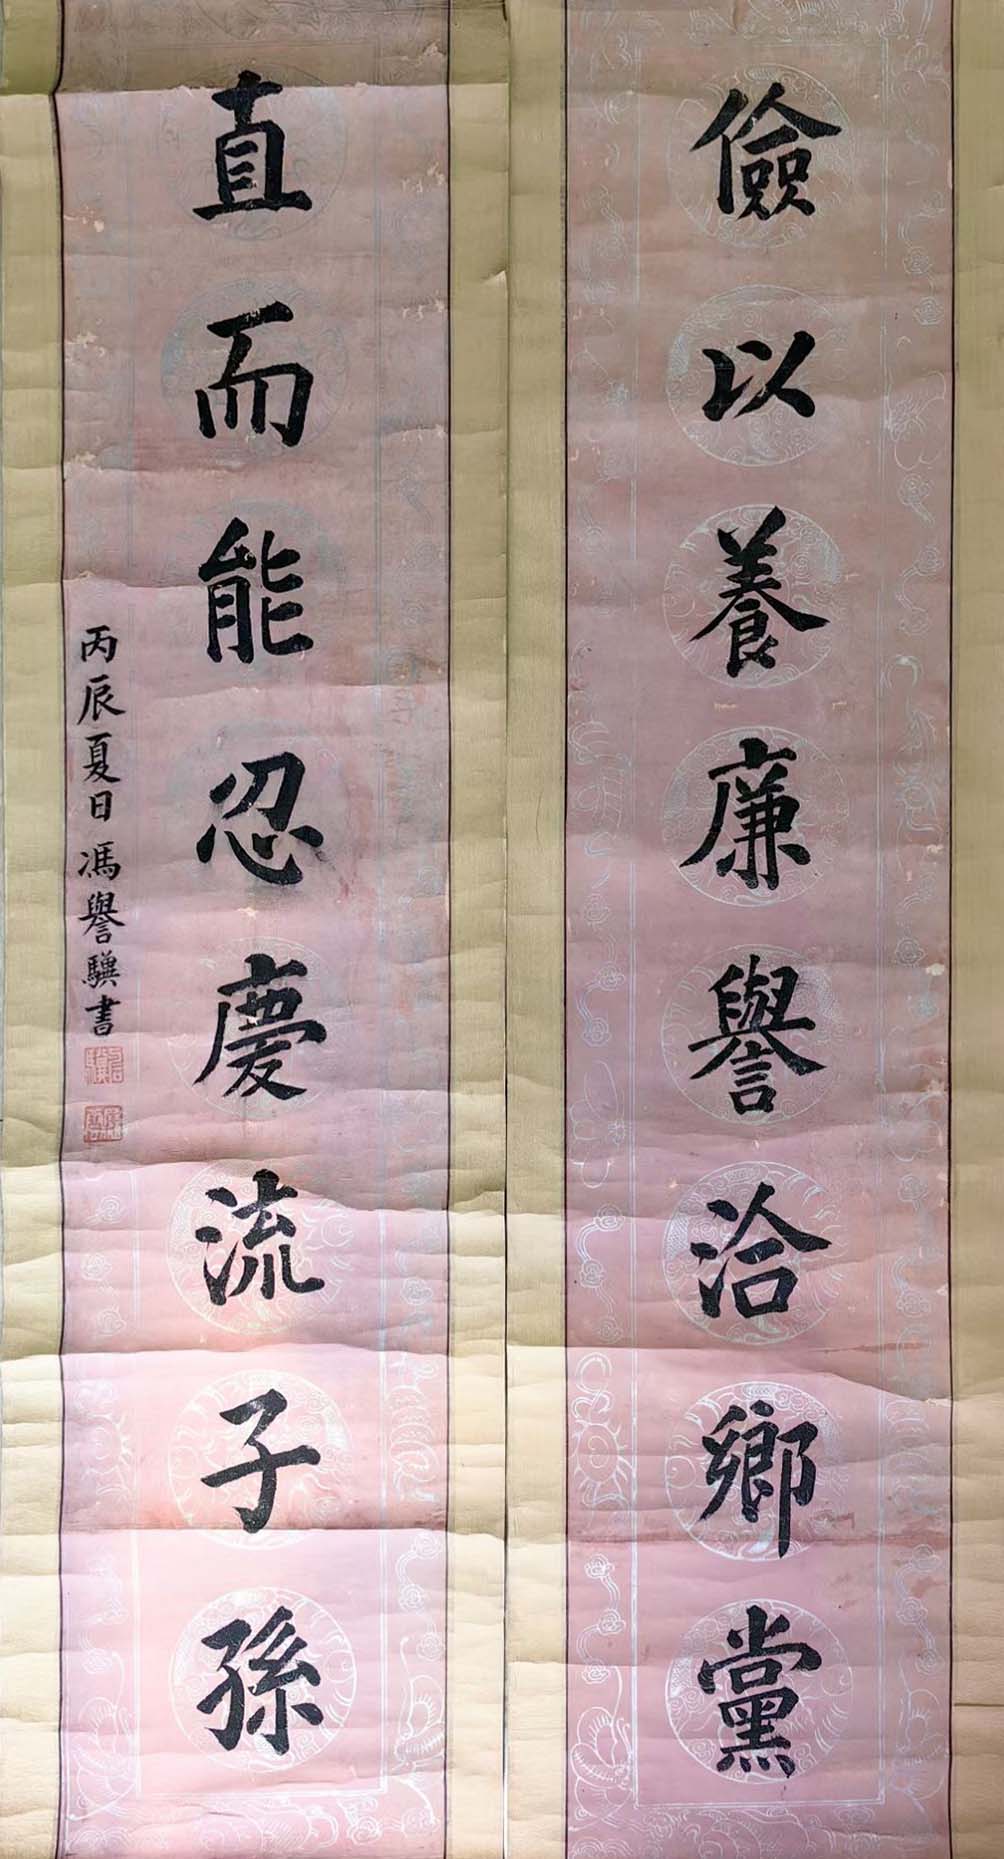 儉以養廉譽洽鄉黨
直而能忍慶流子孫
丙辰夏日馮譽驥書